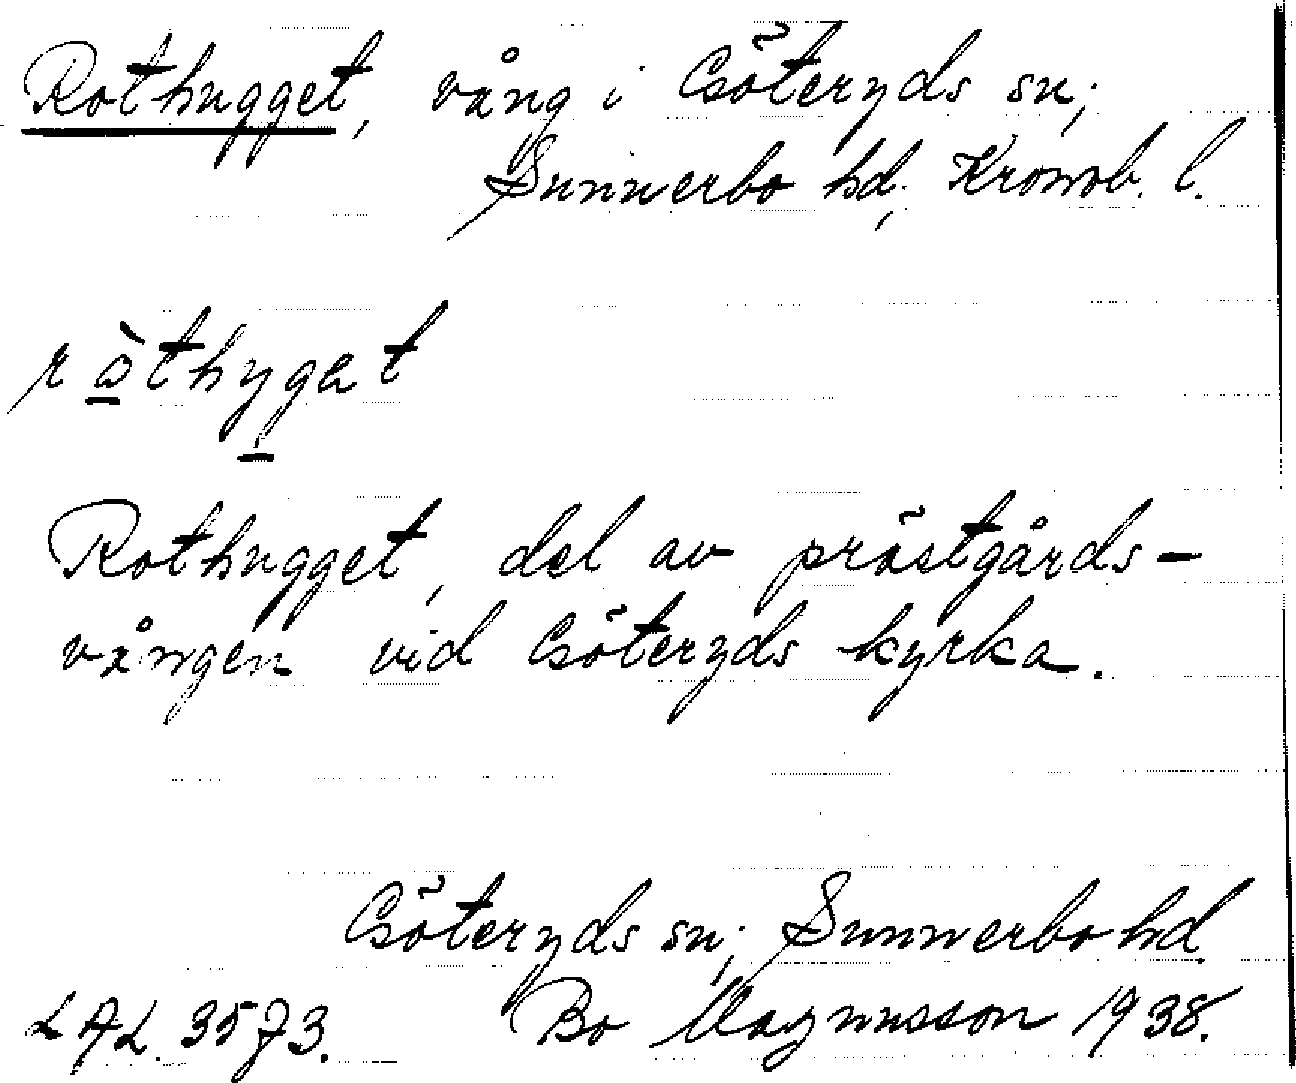 Rothugget, vång i Göteryds sn;
Sunnerbo hd; Kronob. l.
ròthyget
Rothugget, del av prästgårds-
vången vid Göteryds kyrka.
Göteryds sn; Sunnerbo hd.
LAL. 3573. Bo Magnusson 1938.